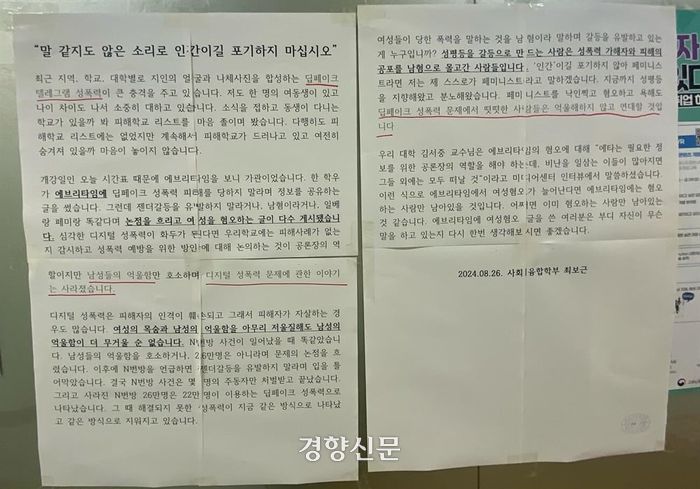 “말 같지도 않은 소리로 인간이길 포기하지 마십시오”
최근 지역, 학교, 대학별로 지인의 얼굴과 나체사진을 합성하는 딥페이크
텔레그램 성폭력이 큰 충격을 주고 있습니다. 저도 한 명의 여동생이 있고
나이 차이도 나서 소중히 대하고 있습니다. 소식을 접하고 동생이 다니는
학교가 있을까 봐 피해학교 리스트를 마음 졸이며 봤습니다. 다행히도 피
해학교 리스트에는 없었지만 계속해서 피해학교가 드러나고 있고 여전히
숨겨져 있을까 마음이 놓이지 않습니다.
개강일인 오늘 시간표 때문에 에브리타임을 보니 가관이었습니다. 한 학우
가 에브리타임에 딥페이크 성폭력 피해를 당하지 말라며 정보를 공유하는
글을 썼습니다. 그런데 젠더갈등을 유발하지 말라거나, 남혐이라거나, 일베
랑 페미랑 똑같다며 논점을 흐리고 여성을 혐오하는 글이 다수 게시됐습니
다. 심각한 디지털 성폭력이 화두가 된다면 우리학교에는 피해사례가 없는
지 감시하고 성폭력 예방을 위한 방안에 대해 논의하는 것이 공론장의 역
할이지만 남성들의 억울함만 호소하며 디지털 성폭력 문제에 관한 이야기
는 사라졌습니다.
디지털 성폭력은 피해자의 인격이 훼손되고 그래서 피해자가 자살하는 경
우도 많습니다. 여성의 목숨과 남성의 억울함을 아무리 저울질해도 남성의
억울함이 더 무거울 순 없습니다. N번방 사건이 일어났을 때 똑같았습니
다. 남성들의 억울함을 호소하거나, 26만명은 아니라며 문제의 논점을 흐
렸습니다. 이후에 N번방을 언급하면 젠더갈등을 유발하지 말라며 입을 틀
어막았습니다. 결국 N번방 사건은 몇 명의 주동자만 처벌받고 끝났습니다.
그리고 사라진 N번방 26만명은 22만 명이 이용하는 딥페이크 성폭력으로
나타났습니다. 그 때 해결되지 못한 성폭력이 지금 같은 방식으로 나타났
고 같은 방식으로 지워지고 있습니다.
여성들이 당한 폭력을 말하는 것을 남혐이라 말하며 갈등을 유발하고 있는
게 누구입니까? 성평등을 갈등으로 만드는 사람은 성폭력 가해자와 피해의
공포를 남혐으로 몰고간 사람들입니다. ‘인간’이길 포기하지 않아 페미니스
트라면 저는 제 스스로가 페미니스트라고 말하겠습니다. 지금까지 성평등
을 지향해왔고 분노해왔습니다. 페미니스트를 낙인찍고 혐오하고 욕해도
딥페이크 성폭력 문제에서 떳떳한 사람들은 억울해하지 않고 연대할 것입
니다
우리 대학 김서중 교수님은 에브리타임의 혐오에 대해 “에타는 필요한 정
보를 위한 공론장의 역할을 해야 하는데, 비난을 일삼는 이들이 많아지면
그들 외에는 모두 떠날 것”이라고 미디어센터 인터뷰에서 말씀하셨습니다.
이런 식으로 에브리타임에서 여성혐오가 늘어난다면 에브리타임에는 혐오
하는 사람만 남아있을 것입니다. 어쩌면 이미 혐오하는 사람만 남아있는
것 같습니다. 에브리타임에 여성혐오 글을 쓴 여러분은 부디 자신이 무슨
말을 하고 있는지 다시 한번 생각해보시면 좋겠습니다.
2024.08.26. 사회융합학부 최보근
경향신문